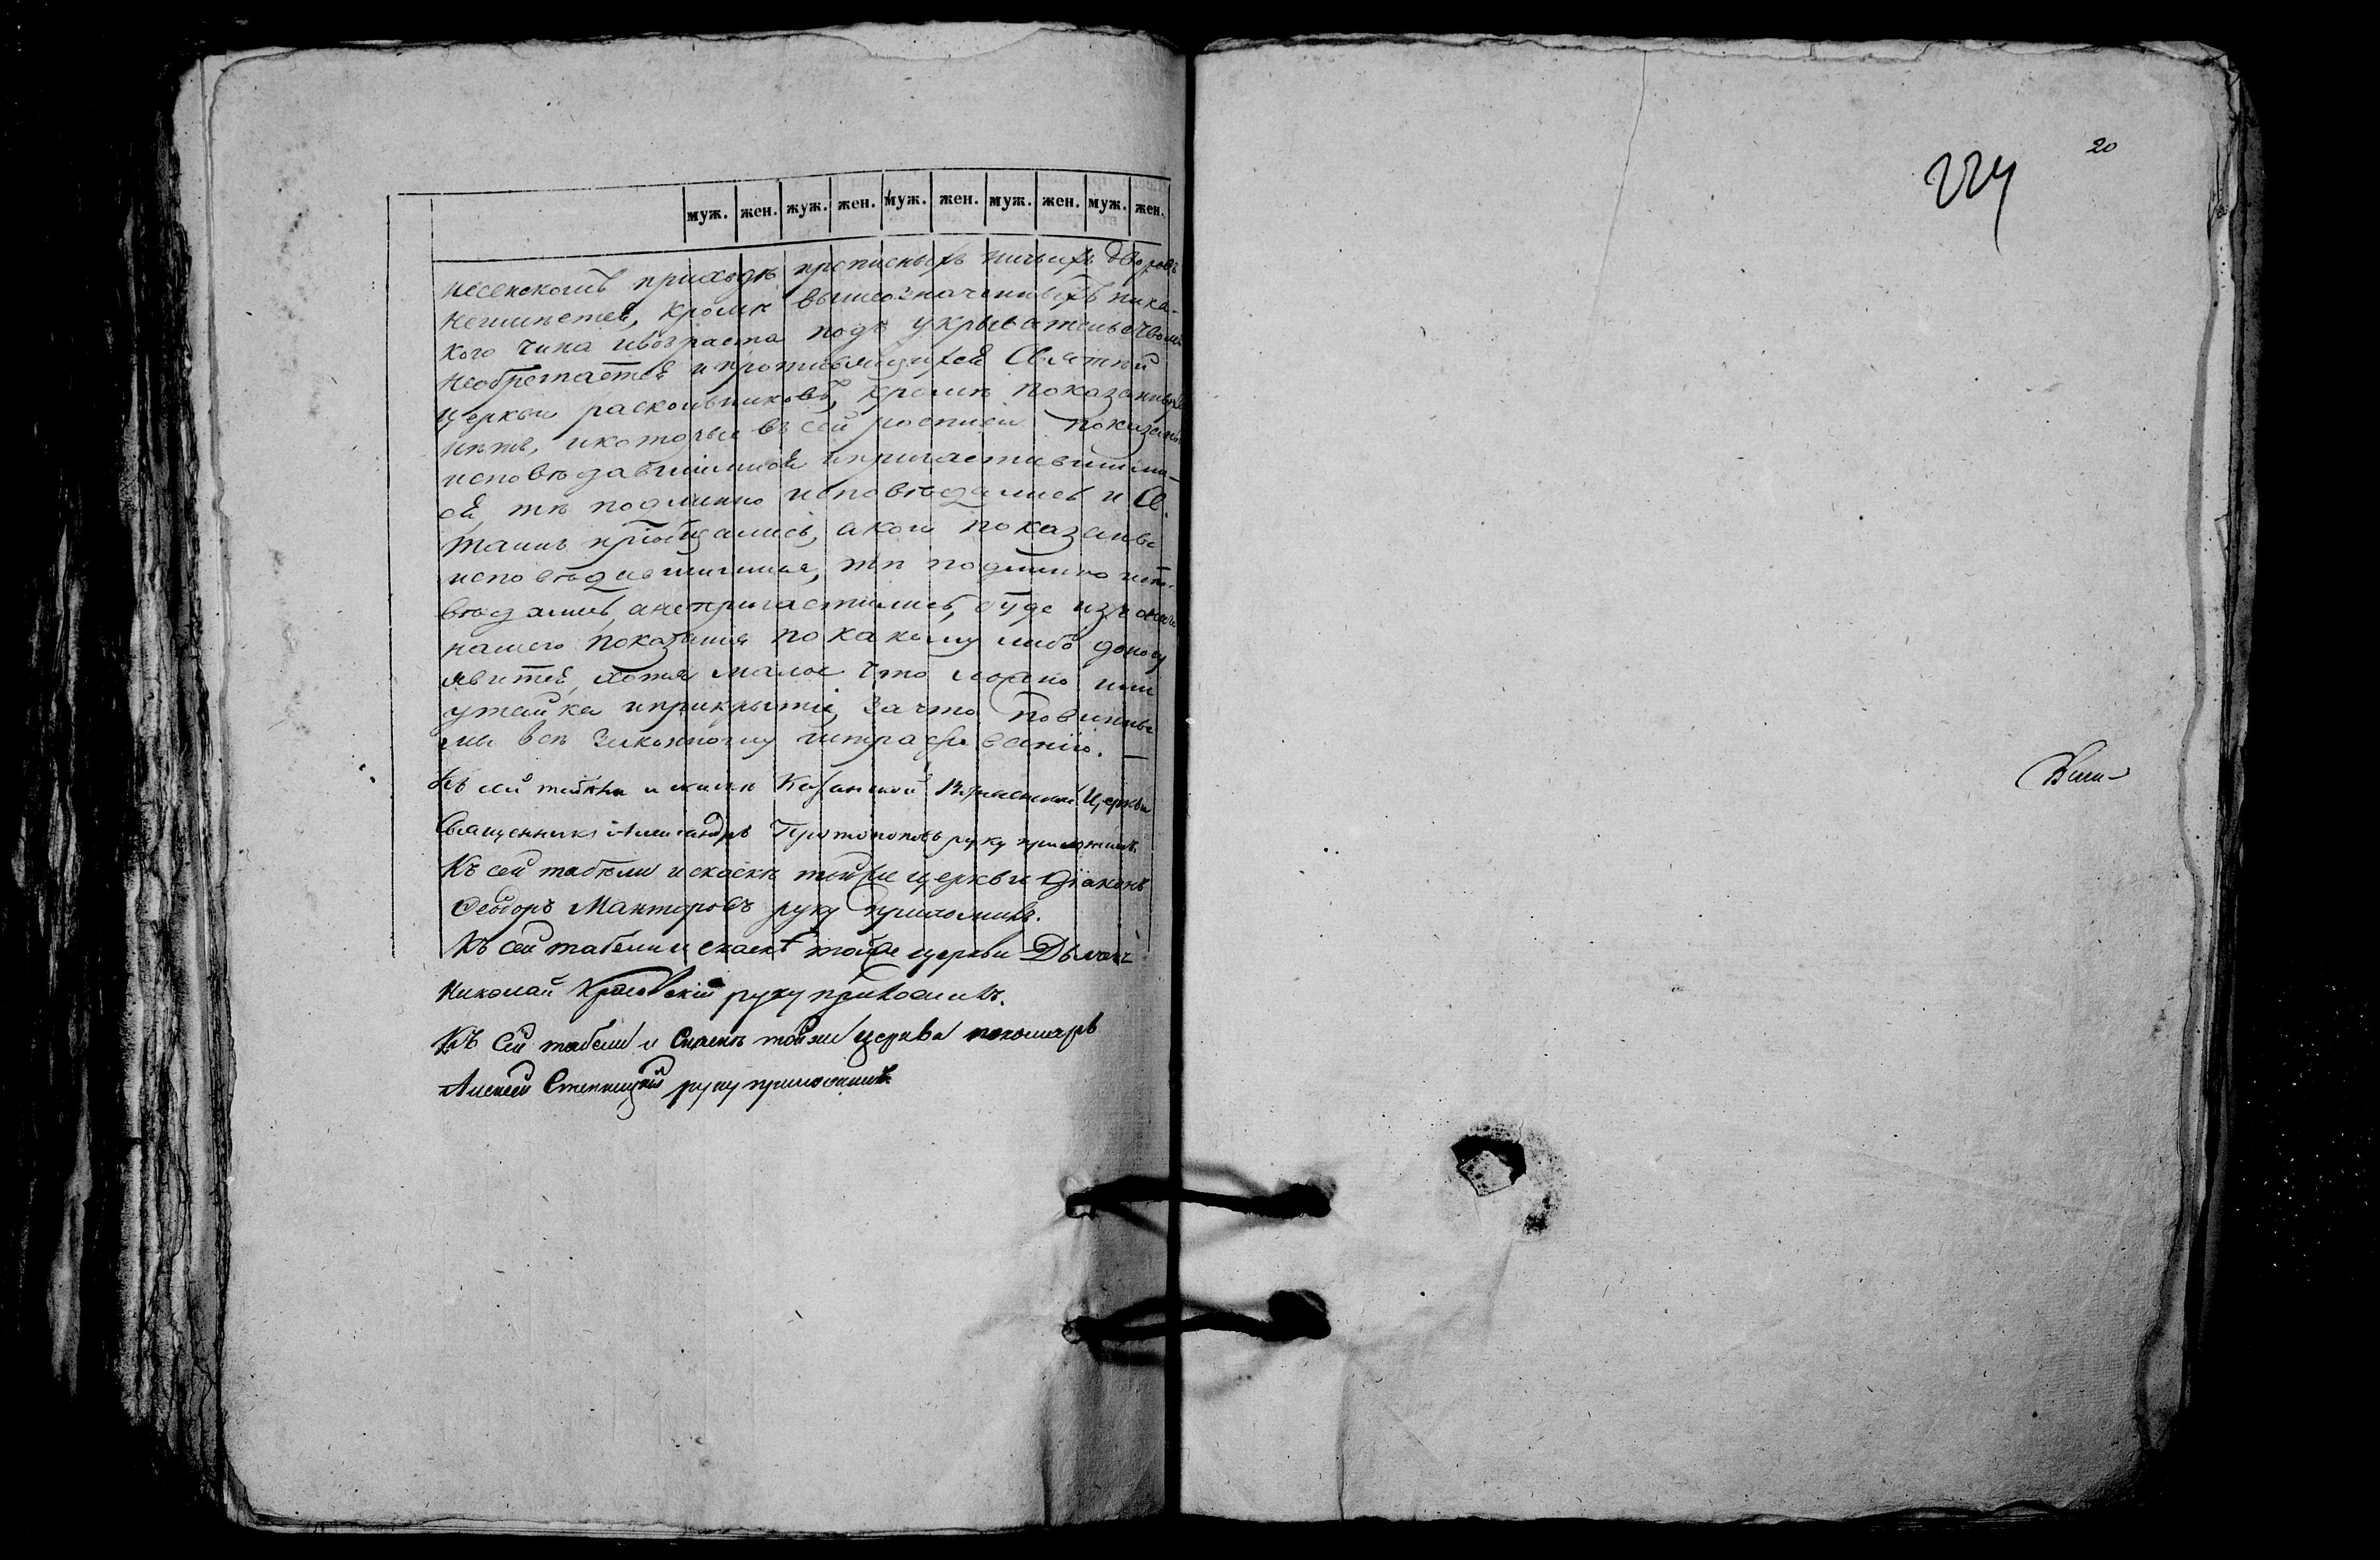 муж. жен. жуж. жен. муж. жен. муж. жен. муж. жен.
несенскомъ приходѣ прописныхъ ничьихъ дворовъ
неимѣется, кромѣ вышеозначенныхъ ника-
кого чина ивозраста подъ укрывательствомъ
необретается ипротивящихся Святѣй
церкви раскольниковъ, кромѣ показанныхъ
нѣтъ, икоторые въ сей росписи показаны
исповѣдавшимися ипричастившими-
ся, тѣ подлинно исповѣдались и Св.
таинъ пріобщались, акои показаны
исповѣдавшимися, тѣ подлинно испо-
вѣдались, анепричастились, буде изъ онаго
нашего показанія покакому либо доносу
явится, хотя малое что ложно или
утайка иприкрытіе, зато повинны
мы всѣ законному штрафованію. —
Къ сей и Казанской Церкви
Священникъ Александръ Протопоповъ руку приложилъ.
Къ сей табели искаскѣ тойже церкви діаконъ
Феодоръ Мантуровъ руку приложилъ.
Къ сей табели и скаскѣ тойже церкви Дьячокъ
Николай руку приложилъ.
Къ Сей табели и Скаскѣ тойже церкви пономарь
Алексей руку приложилъ
20
224